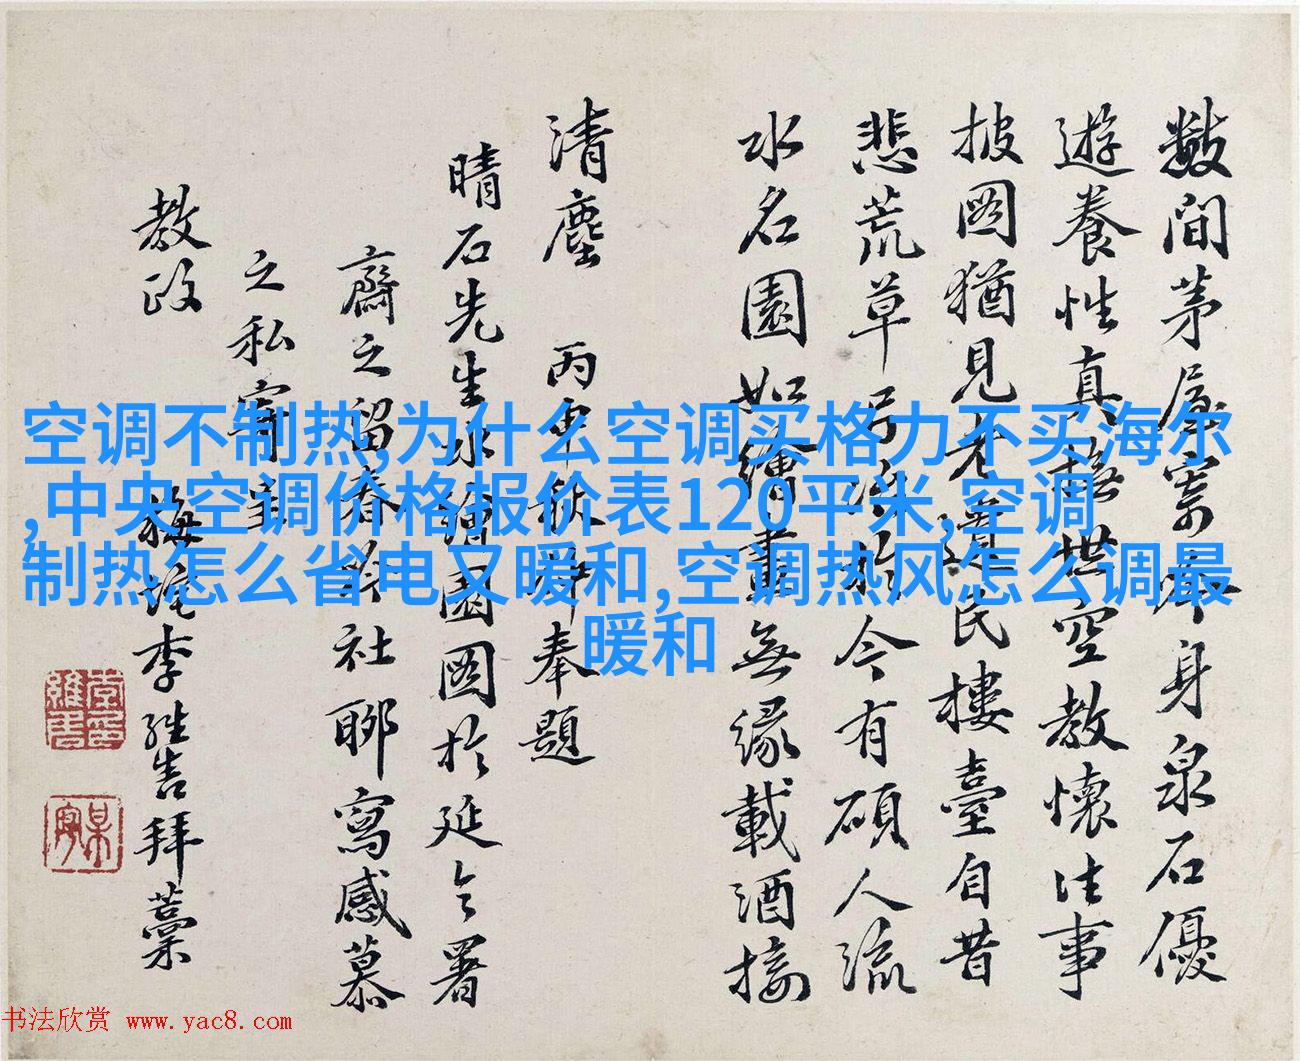 數間茅屋寄身泉石優
遊養性真世空教懷往事
披圖猶見老遺民樓臺自昔
悲荒草弓冶於今有碩人流
水名園如繪畫無緣載酒接
清塵 丙申秋仲奉題
晴石先生水繪園圖於延令署
齋之留春社聊寫感慕
之私寄呈
教政
梅李拜藁
空调不制热,为什么空调买格力不买海尔
,中央空调价格报价表120平米,空调
制热怎么省电又暖和,空调热风怎么调最
暖和
书法欣赏 www.yac8.com